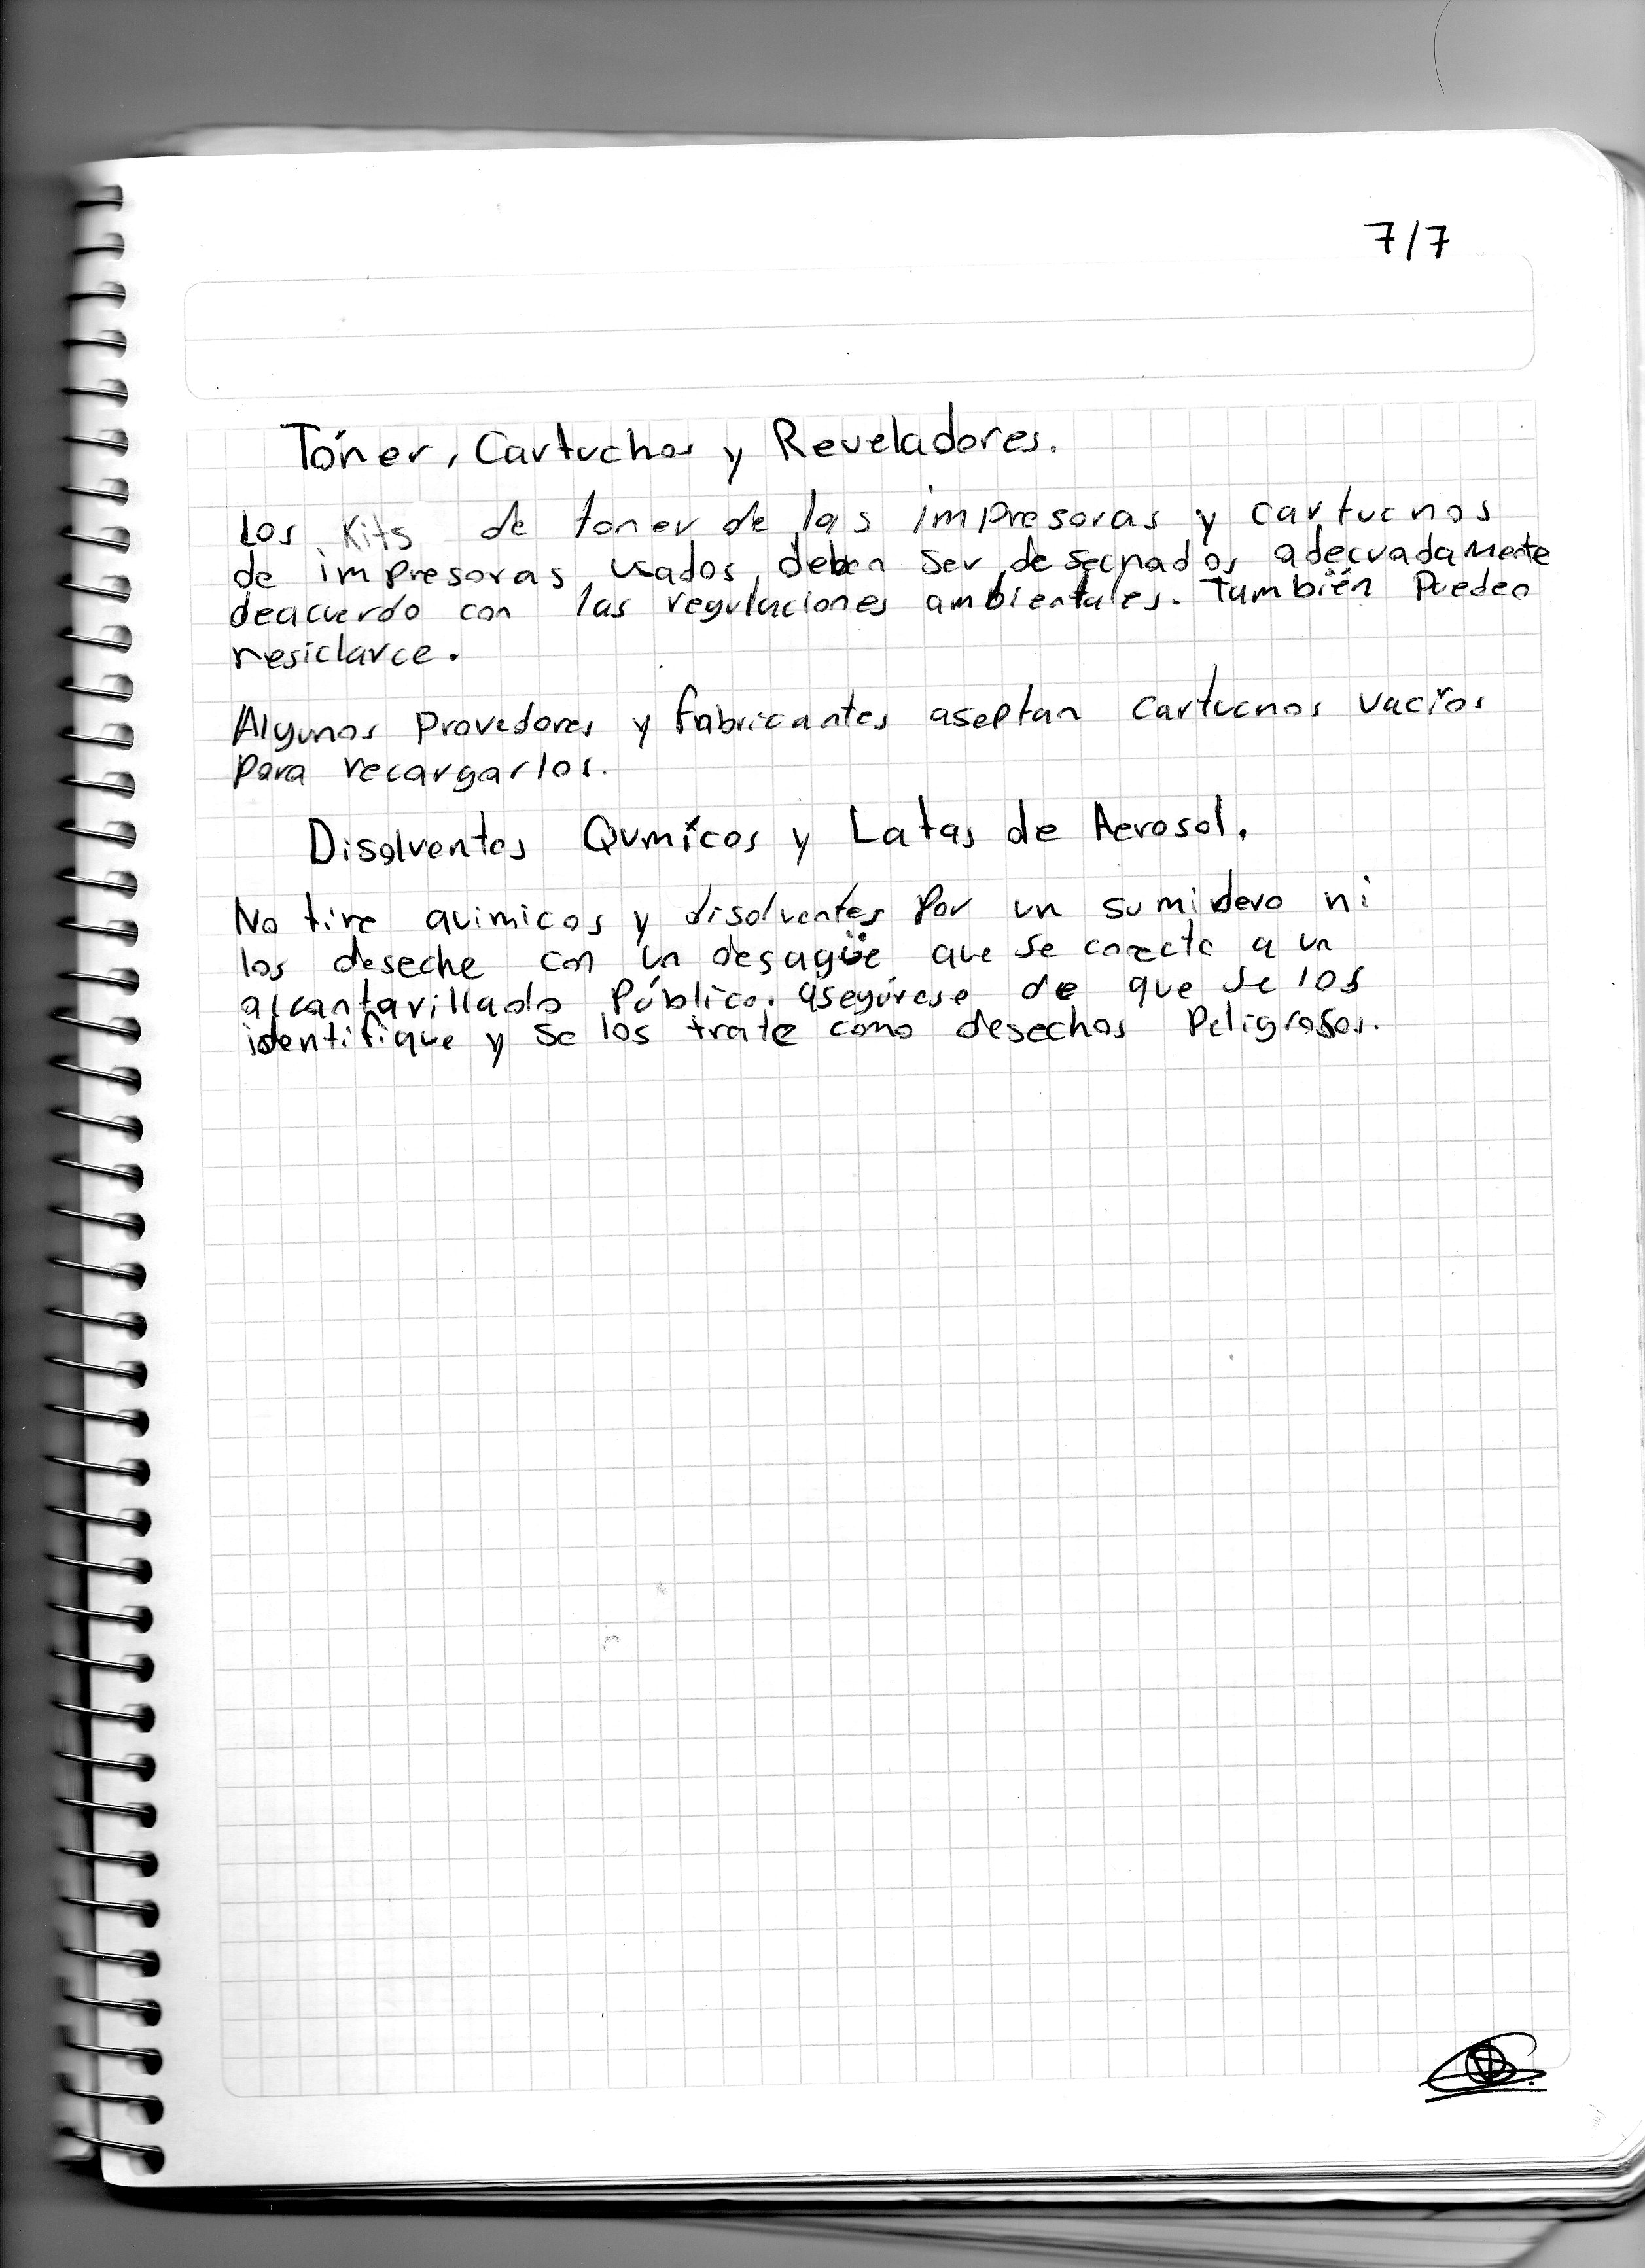 7/7
Tóner, Cartuchos y Reveladores.
Los Kits de toner de las impresoras y cartuchos
de impresoras usados deben ser desechados adecuadamente
deacuerdo con las regulaciones ambientales. También Pueden
resiclarce.
Algunos Provedores y fabricantes aseptan cartuchos vacíos
Para recargarlos.
Disolventes Qumícos y Latas de Aerosol.
No tire quimicos y disolventes Por un sumidero ni
los deseche con un desagüe que se conecte a un
alcantarillado Público. asegúrese de que se los
identifique y se los trate como desechos Peligrosos.